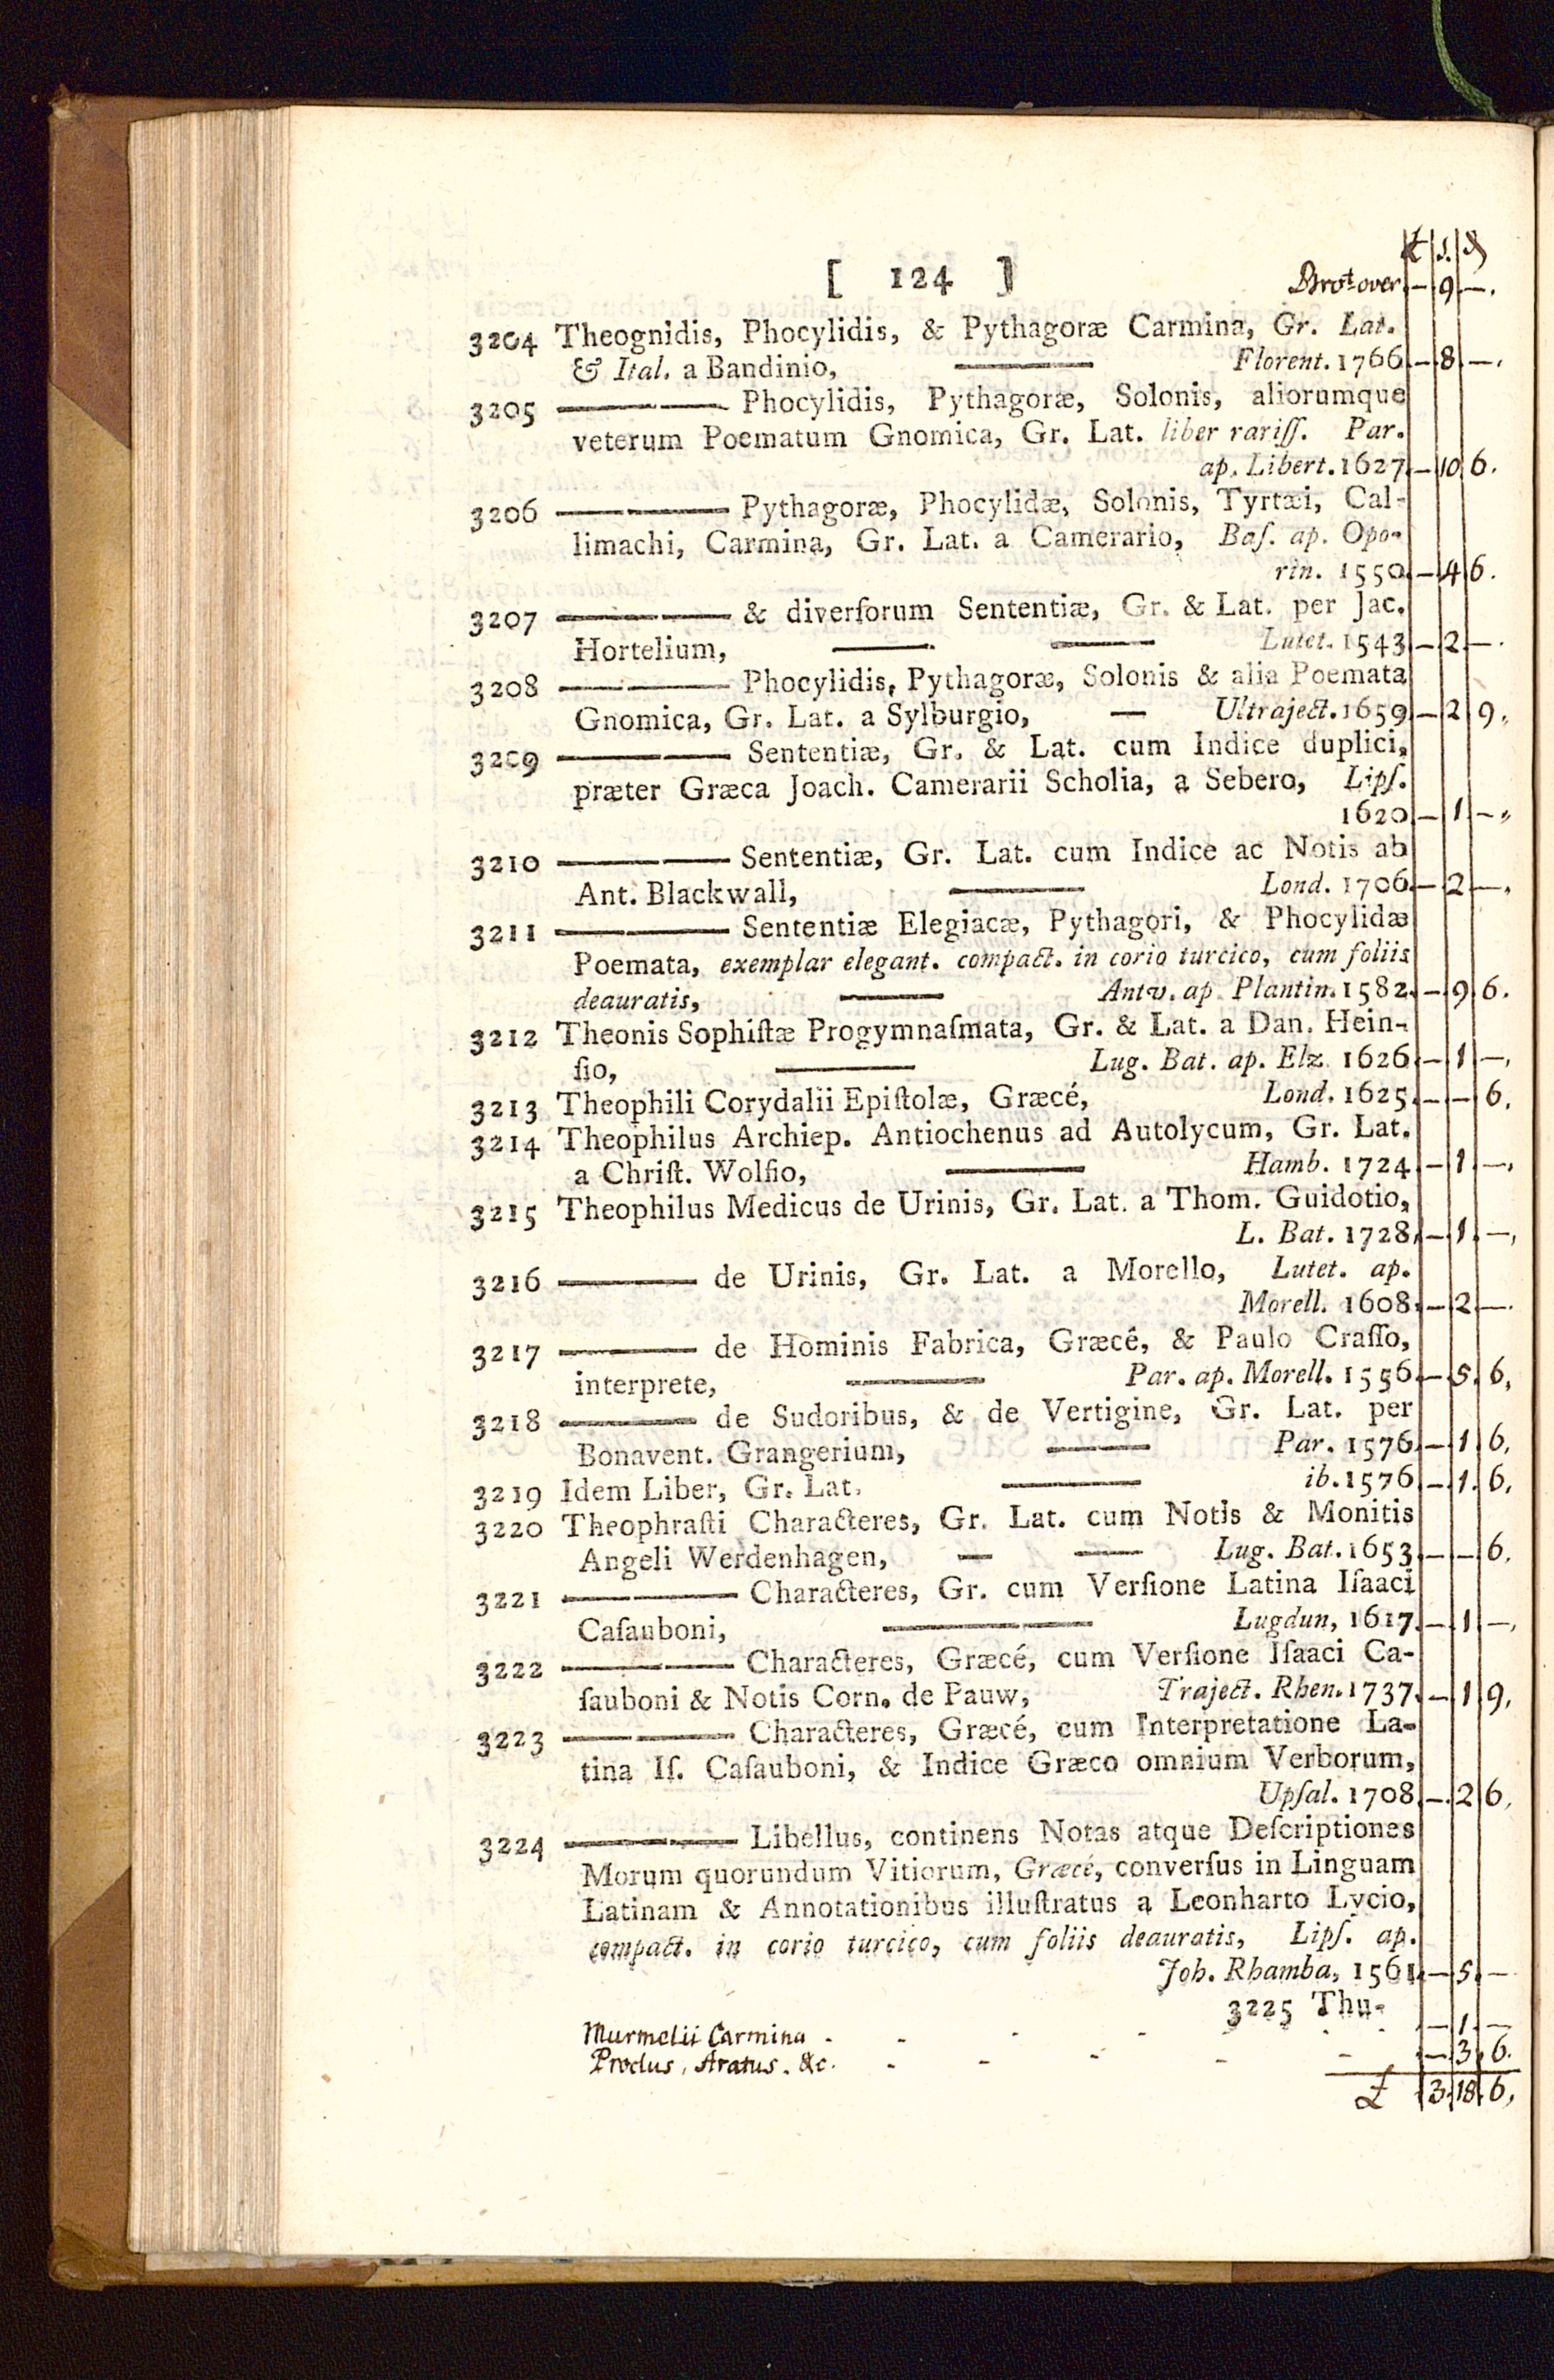 £ | s. | d
[ 124 ] Brot over — 9 —.
3204 Theognidis, Phocylidis, & Pythagoræ Carmina, Gr. Lat.
& Ital. a Bandinio, —— Florent. 1766 — 8 —.
3205 —— Phocylidis, Pythagoræ, Solonis, aliorumque
veterum Poematum Gnomica, Gr. Lat. liber rariſſ. Par.
ap. Libert. 1627 — 10 6.
3206 —— Pythagoræ, Phocylidæ, Solonis, Tyrtæi, Cal-
limachi, Carmina, Gr. Lat. a Camerario, Baſ. ap. Opo-
rin. 1550 — 4 6.
3207 —— & diverſorum Sententiæ, Gr. & Lat. per Jac.
Hortelium, —— —— Lutet. 1543 — 2 —.
3208 —— Phocylidis, Pythagoræ, Solonis & alia Poemata
Gnomica, Gr. Lat. a Sylburgio, — Ultraject. 1659 — 2 9.
3209 —— Sententiæ, Gr. & Lat. cum Indice duplici,
præter Græca Joach. Camerarii Scholia, a Sebero, Lipſ.
1620 — 1 —.
3210 —— Sententiæ, Gr. Lat. cum Indice ac Notis ab
Ant. Blackwall, —— Lond. 1706 — 2 —.
3211 —— Sententiæ Elegiacæ, Pythagori, & Phocylidæ
Poemata, exemplar elegant. compact. in corio turcico, cum foliis
deauratis, —— Antv. ap. Plantin. 1582. — 9 6.
3212 Theonis Sophiſtæ Progymnaſmata, Gr. & Lat. a Dan. Hein-
ſio, —— Lug. Bat. ap. Elz. 1626 — 1 —.
3213 Theophili Corydalii Epiſtolæ, Græcé, Lond. 1625. — — 6.
3214 Theophilus Archiep. Antiochenus ad Autolycum, Gr. Lat.
a Chriſt. Wolfio, —— Hamb. 1724 — 1 —.
3215 Theophilus Medicus de Urinis, Gr. Lat. a Thom. Guidotio,
L. Bat. 1728. — 1 —.
3216 —— de Urinis, Gr. Lat. a Morello, Lutet. ap.
Morell. 1608. — 2 —.
3217 —— de Hominis Fabrica, Græcé, & Paulo Craſſo,
interprete, —— Par. ap. Morell. 1556 — 5 6.
3218 —— de Sudoribus, & de Vertigine, Gr. Lat. per
Bonavent. Grangerium, —— Par. 1576 — 1 6.
3219 Idem Liber, Gr. Lat. —— ib. 1576 — 1 6.
3220 Theophraſti Characteres, Gr. Lat. cum Notis & Monitis
Angeli Werdenhagen, — —— Lug. Bat. 1653 — — 6.
3221 —— Characteres, Gr. cum Verſione Latina Iſaaci
Caſauboni, —— Lugdun, 1617. — 1 —.
3222 —— Characteres, Græcé, cum Verſione Iſaaci Ca-
ſauboni & Notis Corn. de Pauw, Traject. Rhen. 1737. — 1 9.
3223 —— Characteres, Græcé, cum Interpretatione La-
tina Iſ. Caſauboni, & Indice Græco omnium Verborum,
Upſal. 1708. — 2 6.
3224 —— Libellus, continens Notas atque Deſcriptiones
Morum quorundum Vitiorum, Græcé, converſus in Linguam
Latinam & Annotationibus illuſtratus a Leonharto Lycio,
compact. in corio turcico, cum foliis deauratis, Lipſ. ap.
Joh. Rhamba, 1561 — 5 —
3225 Thu-
Murmelii Carmina - - - - - — 1 —
Proclus, Aratus. &c. - - - - - — 3 6.
£ 3. 18. 6.